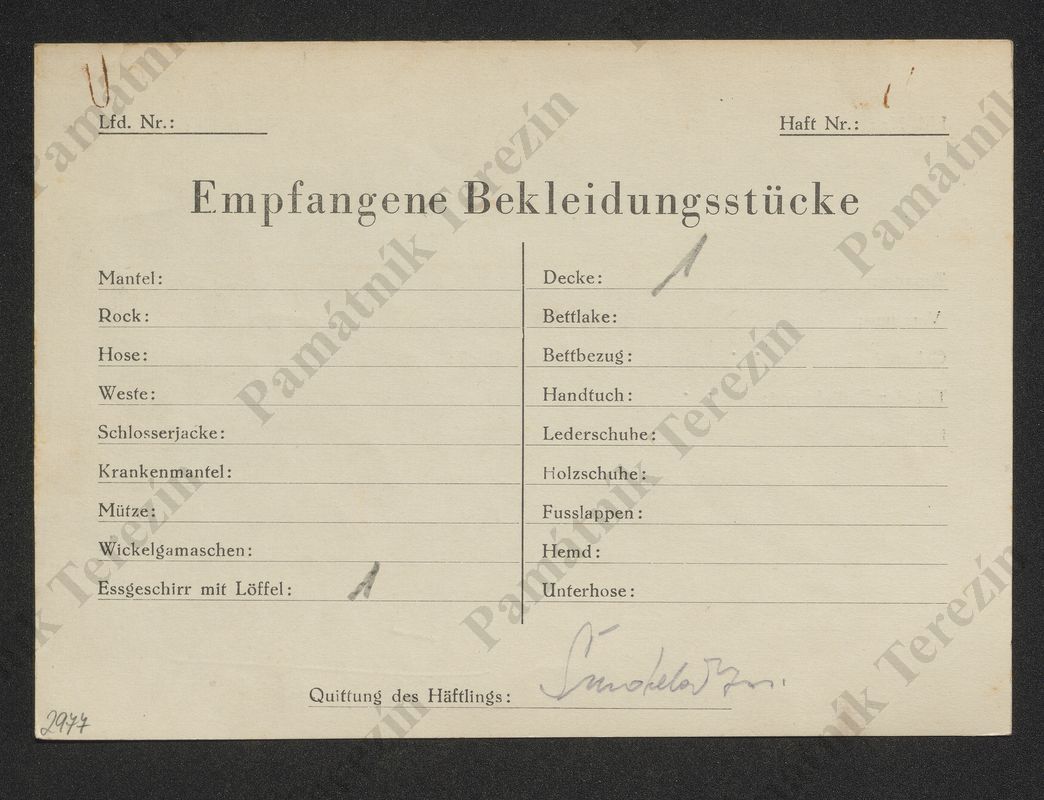 Lfd. Nr.:
Haft Nr.:
Empfangene Bekleidungsstücke
Mantel:
Rock:
Hose:
Weste:
Schlosserjacke:
Krankenmantel:
Mütze:
Wickelgamaschen:
Essgeschirr mit Löffel: 1
Decke: 1
Bettlake:
Bettbezug:
Handtuch:
Lederschuhe:
Holzschuhe:
Fusslappen:
Hemd:
Unterhose:
Quittung des Häftlings:
2977
Památník Terezín
Památník Terezín
Památník Terezín
Památník Terezín